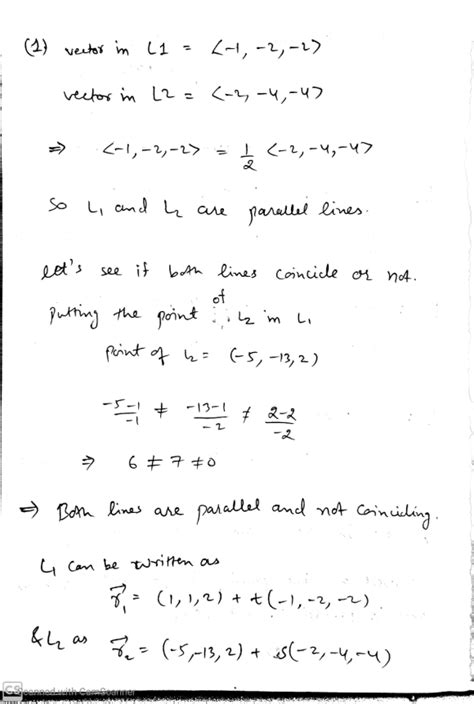 (1) vector in L1 = <-1, -2, -2>
vector in L2 = <-2, -4, -4>
⇒ <-1, -2, -2> = 1/2 <-2, -4, -4>
So L1 and L2 are parallel lines.
let's see if both lines coincide or not.
Putting the point of L2 in L1
Point of L2 = (-5, -13, 2)
(-5-1)/-1 ≠ (-13-1)/-2 ≠ (2-2)/-2
⇒ 6 ≠ 7 ≠ 0
⇒ Both lines are parallel and not coinciding.
L1 can be written as
r⃗1 = (1, 1, 2) + t(-1, -2, -2)
& L2 as r⃗2 = (-5, -13, 2) + s(-2, -4, -4)
CS Scanned with CamScanner